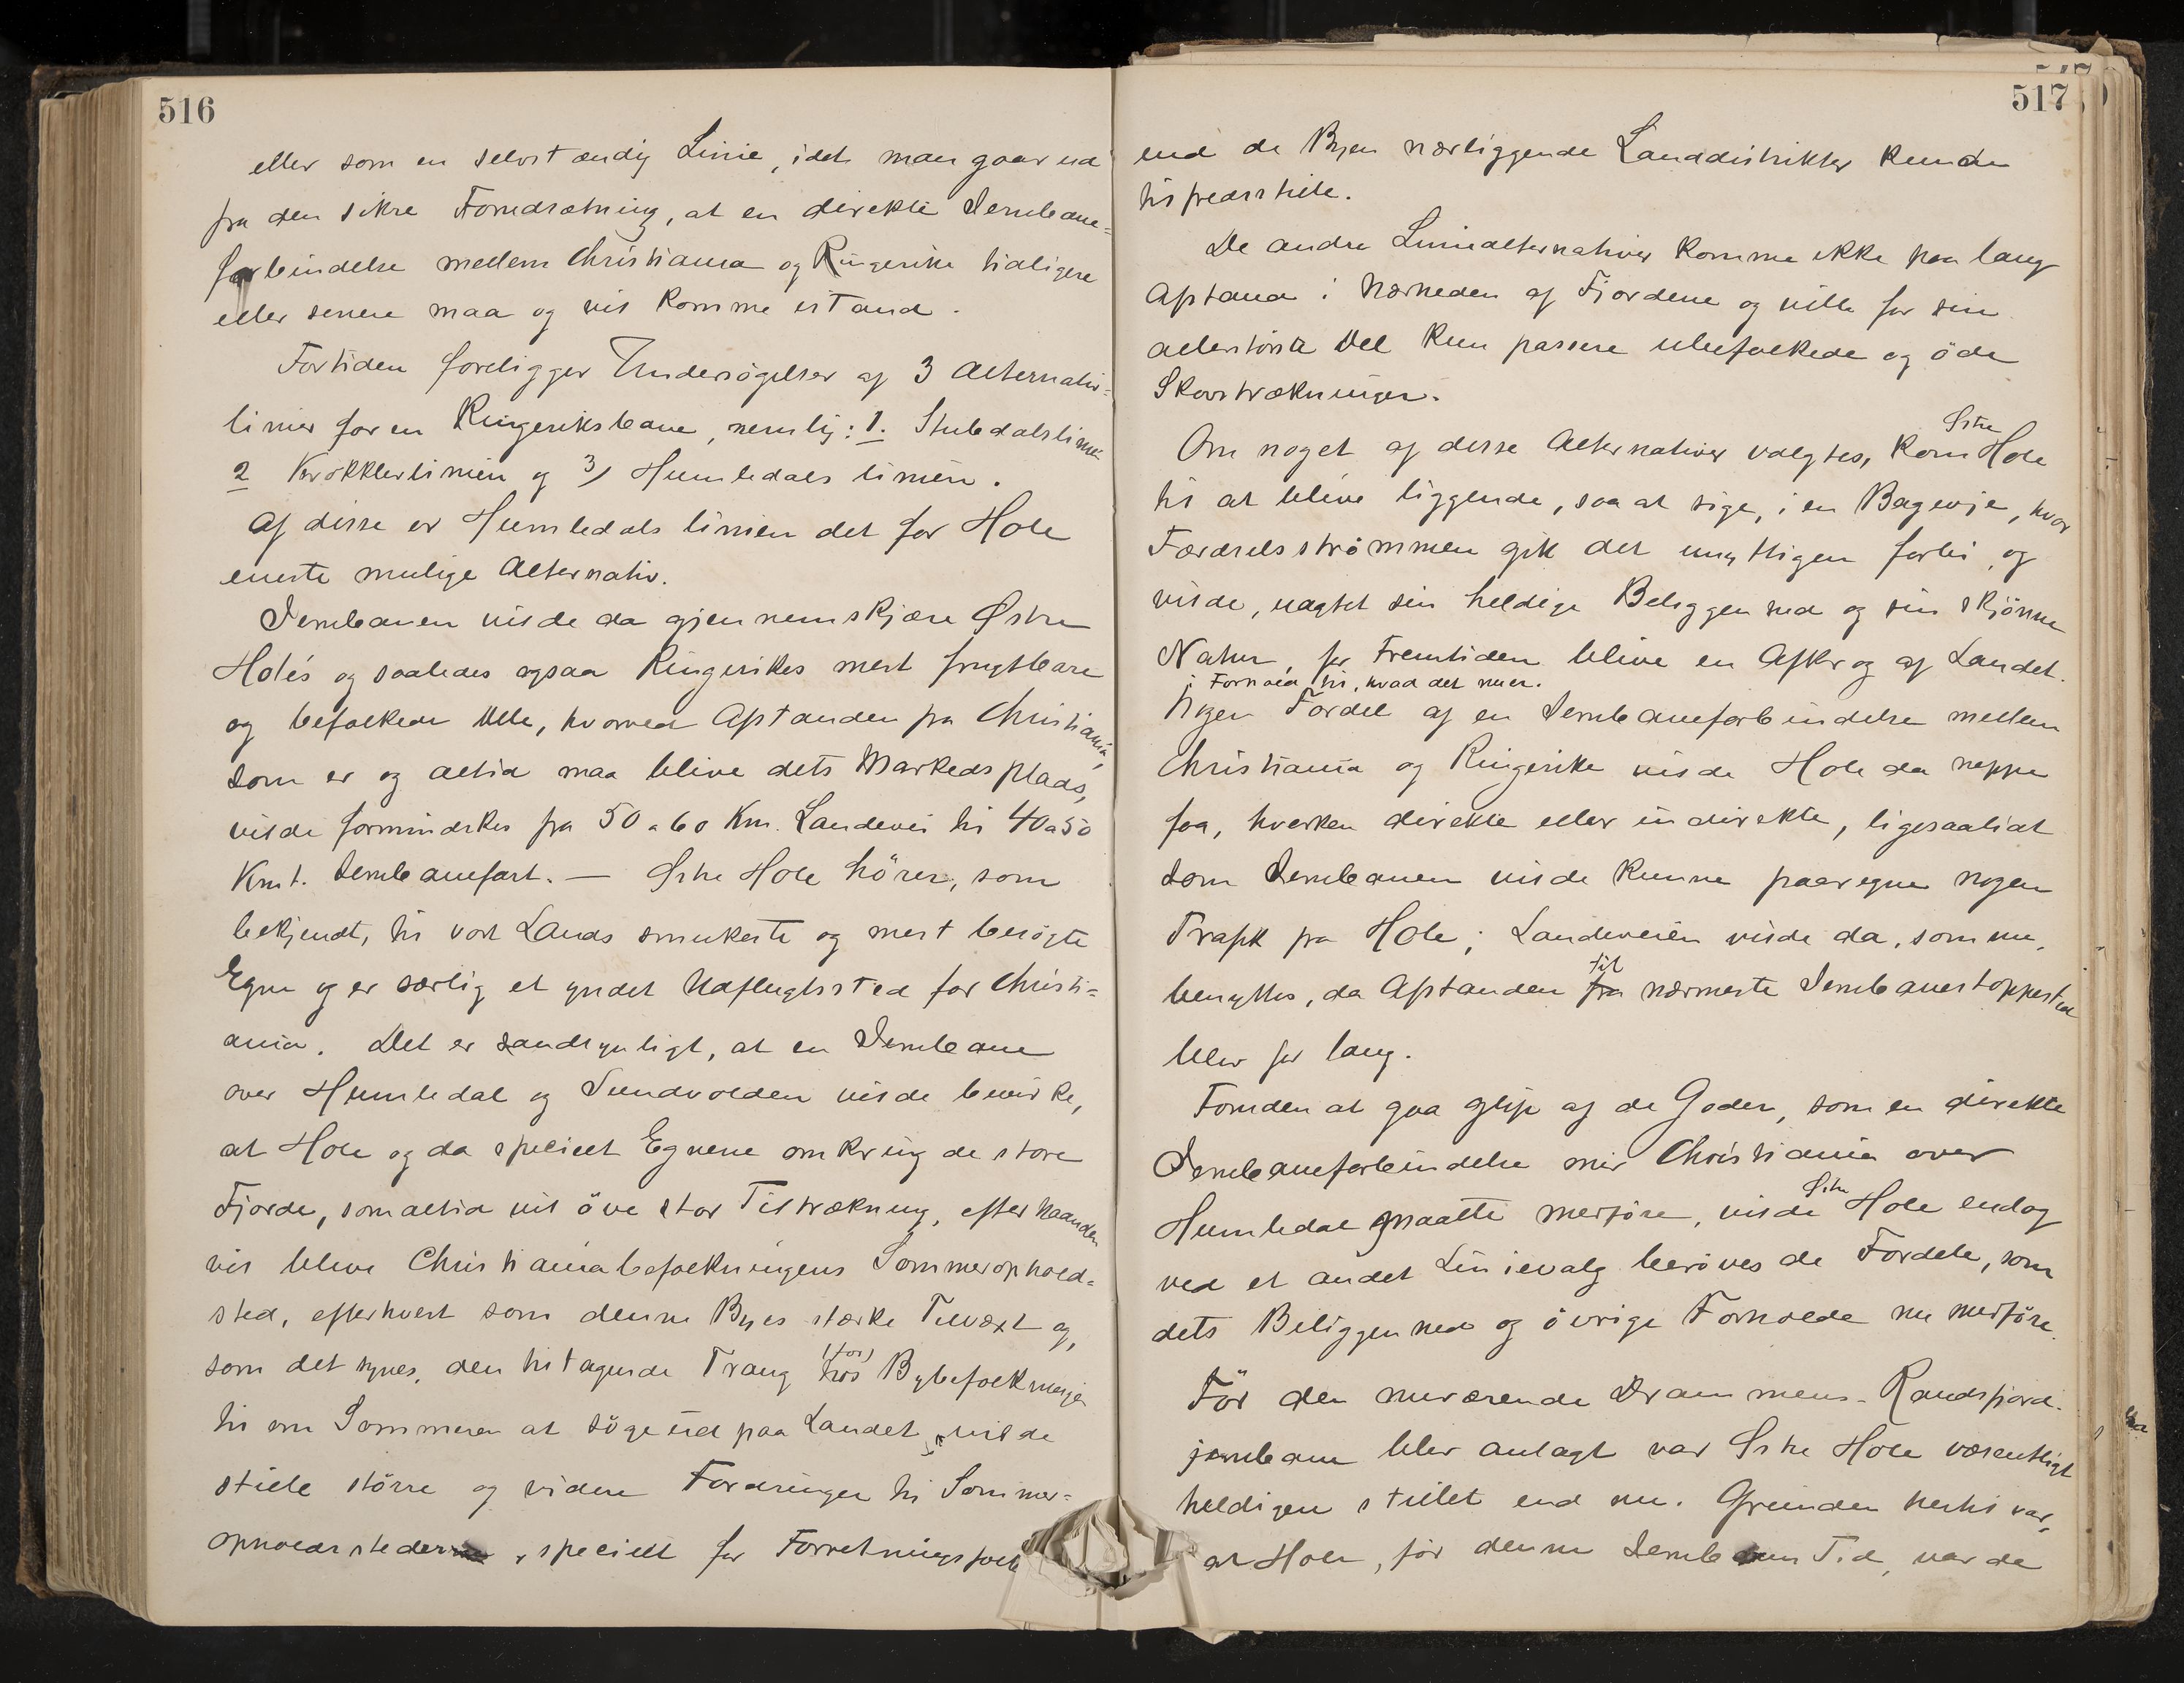 516
eller som en selvstændig Linie, idet man gaar ud
fra den sikre Forudsætning, at en direkte Jernbane=
forbindelse mellem Christiania og Ringerike tidligere
eller senere maa og vil komme istand.
Fortiden foreligger Undersögelser af 3 Alternativ=
linier for en Ringeriksbane, nemlig: 1. Stubdalslinien
2 Krokklevlinien og 3) Humledalslinien.
Af disse er Humledalslinien det for Hole
eneste mulige Alternativ.
Jernbanen vilde da gjennemskjære Østre
Holes og saaledes ogsaa Ringerikes mest frugtbare
og befolkede Dele, hvorved Afstanden fra Christiania,
som er og altid maa blive dets Markedsplads,
vilde formindskes fra 50 a 60 Km. Landevei til 40 a 50
Kmt. Jernbanefart. — Østre Hole hörer, som
bekjendt, til vort Lands smukkeste og mest besögte
Egne og er særlig et yndet Udflugtssted for Christi=
ania. Det er sandsynligt, at en Jernbane
over Humledal og Sundvolden vilde bevirke,
at Hole og da specielt Egnene omkring de store
Fjorde, som altid vil öve stor Tiltrækning, efterhaanden
vil blive Christianiabefolkningens Sommerophold=
sted, efterhvert som denne Byes stærke Tilvæxt og,
som det synes, den tiltagende Trang (for) hos Bybefolkningen
til om Sommeren at söge ud paa Landet, vilde
stille större og videre Fordringer til Sommer=
opholdsstederne, specielt for Forretningsfolk
517
end de Byen nærliggende Landdistrikter kunde
tilfredsstille.
De andre Liniealternativer komme ikke paa lang
Afstand i Nærheden af Fjordene og ville for sin
allerstörste Del kun passere ubefolkede og öde
Skovstrækninger.
Om noget af disse Alternativer valgtes, kom Østre Hole
til at blive liggende, saa at sige, i en Bagevje, hvor
Færdselsströmmen gik det unyttigen forbi, og
vilde, uagtet sin heldige Beliggenhed og sin skjönne
Natur, for Fremtiden blive en Afkrog af Landet.
i Forhold til, hvad det nu er.
Nogen Fordel af en Jernbaneforbindelse mellem
Christiania og Ringerike vilde Hole da neppe
faa, hverken direkte eller indirekte, ligesaalidt
som Jernbanen vilde kunne paaregne nogen
Trafik fra Hole; Landeveien vilde da, som nu,
benyttes, da Afstanden fra til nærmeste Jernbanestoppested
blev for lang.
Foruden at gaa glip af de Goder, som en direkte
Jernbaneforbindelse mir Christiania over
Humledal maatte medföre, vilde Østre Hole endog
ved et andet Linievalg beröves de Fordele, som
dets Beliggenhed og övrige Forholde nu medföre.
För den nuværende Drammens-Randsfjord-
jernbane blev anlagt var Østre Hole væsentligt
heldigere stillet end nu. Grunden hertil var,
at Hole, för denne Jernbanes Tid, var de